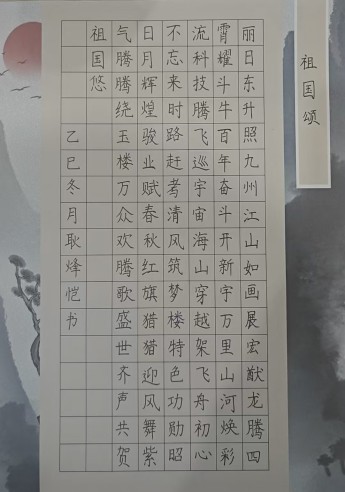 祖国颂
丽日东升照九州江山如画展宏猷龙腾四
霄耀斗牛百年奋斗开新宇万里山河焕彩
流科技腾飞巡宇宙海山穿越架飞舟初心
不忘来时路赶考清风筑梦楼特色功勋昭
日月辉煌骏业赋春秋红旗猎猎迎风舞紫
气腾腾绕玉楼万众欢腾歌盛世齐声共贺
祖国悠
乙巳冬月耿烽恺书